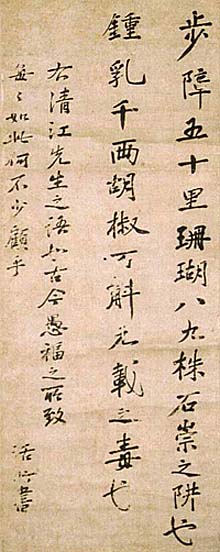 步障五十里珊瑚八九株石崇之阱也
鍾乳千两胡椒可斛元載之毒也
右清江先生之語如古今愚福之所致
每々如此何不少顧乎
活所書